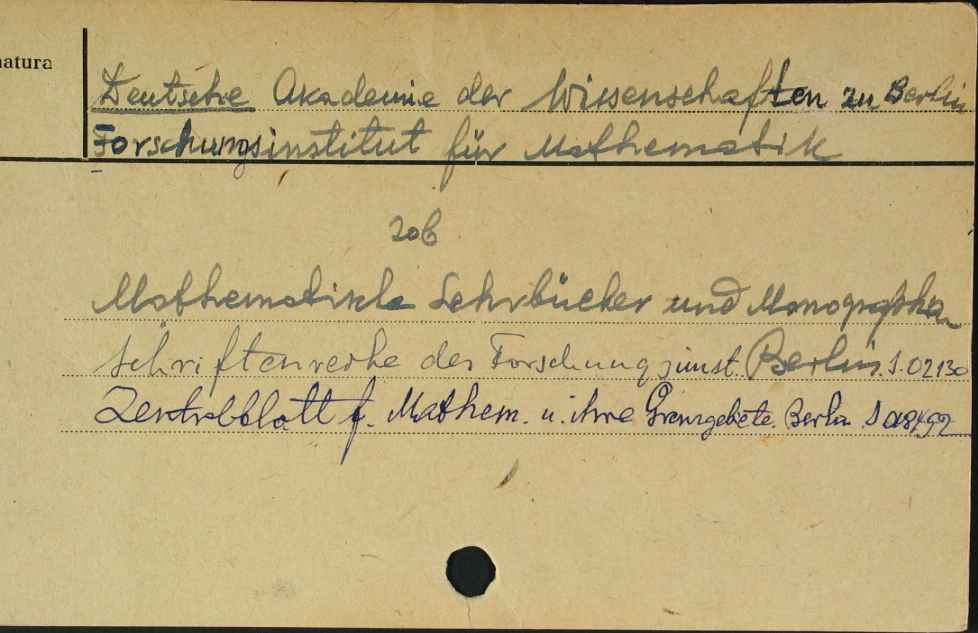 natura
Deutsche Akademie der Wissenschaften zu Berlin
Forschungsinstitut für Mathematik
zob
Mathematische Lehrbücher und Monographien
Schriftenreihe der Forschungsinst. Berlin. S. 02130
Zentralblatt f. Mathem. u. ihre Grenzgebiete. Berlin S